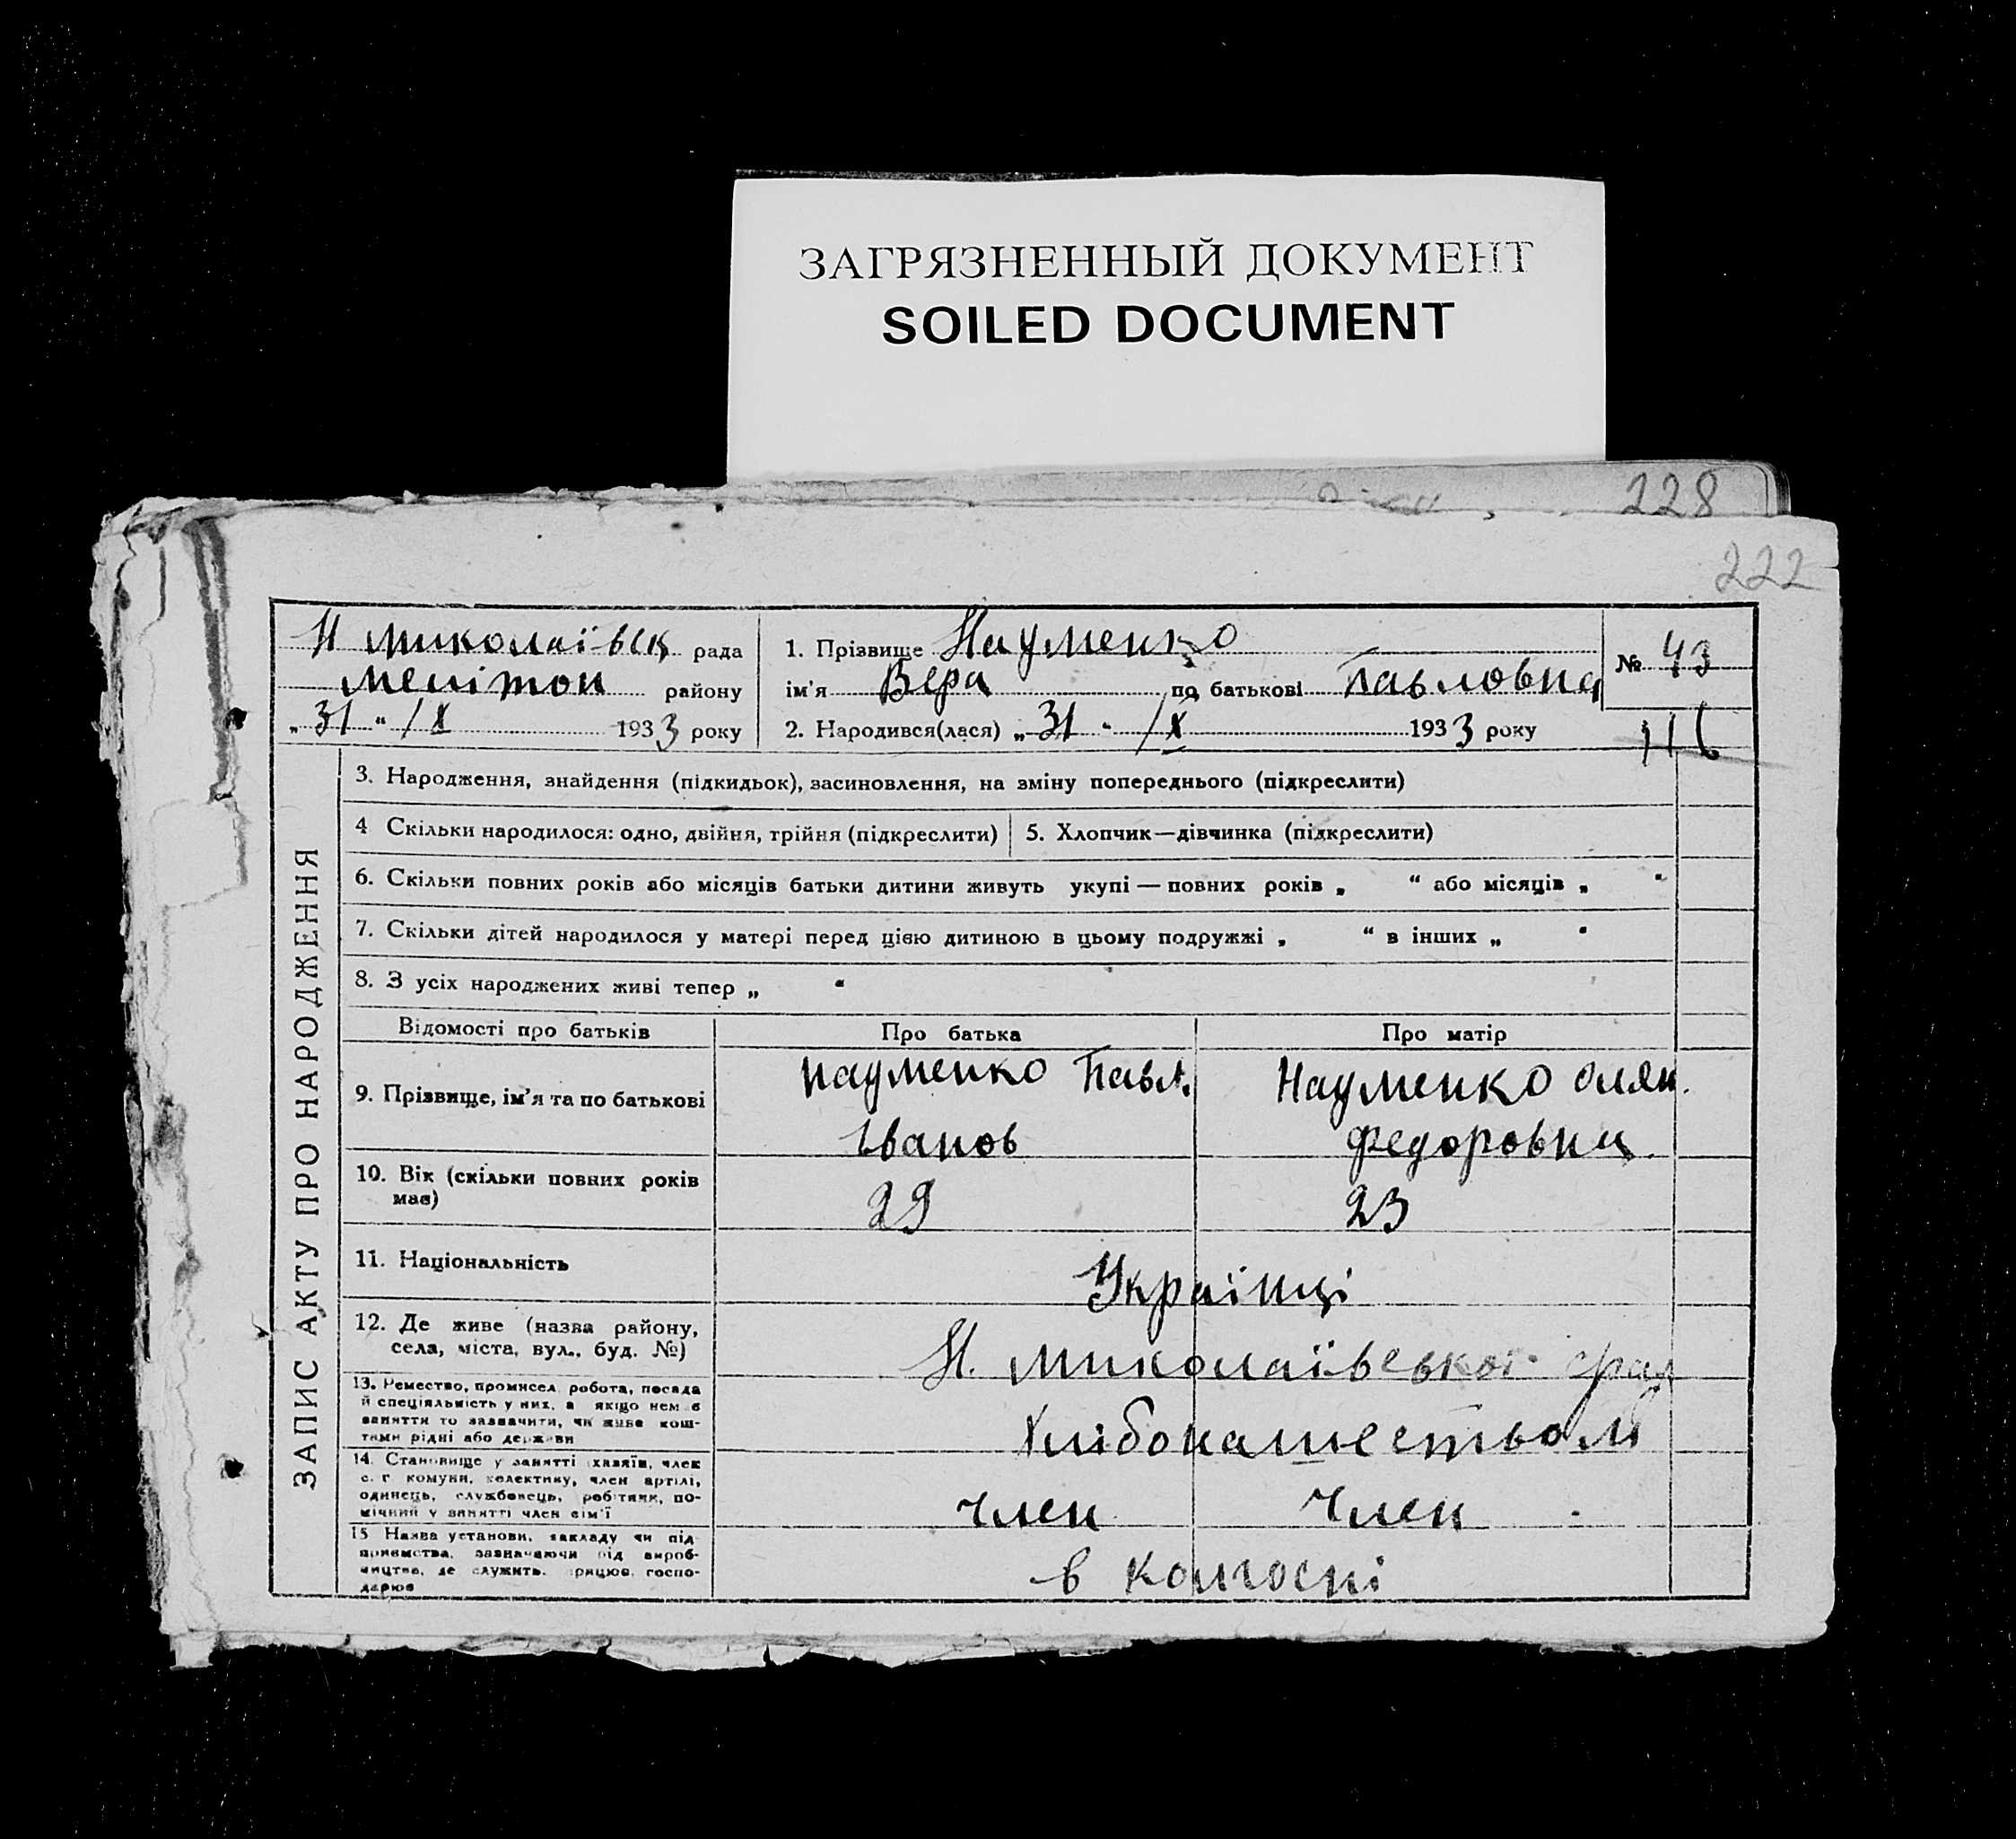 ЗАГРЯЗНЕННЫЙ ДОКУМЕНТ
SOILED DOCUMENT
228
222
Н Миколаївськ рада
Мелітоп району
„31“ /IX 1933 року
1. Прізвище Науменко
ім'я Вера по батькові Павловна
2. Народився(лася) „31“ /IX 1933 року
№ 43
116
ЗАПИС АКТУ ПРО НАРОДЖЕННЯ
3. Народження, знайдення (підкидьок), засиновлення, на зміну попереднього (підкреслити)
4 Скільки народилося: одно, двійня, трійня (підкреслити)
5. Хлопчик—дівчинка (підкреслити)
6. Скільки повних років або місяців батьки дитини живуть укупі — повних років „ “ або місяців „ “
7. Скільки дітей народилося у матері перед цією дитиною в цьому подружжі „ “ в інших „ “
8. З усіх народжених живі тепер „ “
Відомості про батьків
Про батька
Про матір
9. Прізвище, ім'я та по батькові
Науменко Павл.
Іванов
Науменко Олян.
Федоровна
10. Вік (скільки повних років
має)
29
23
11. Національність
Українці
12. Де живе (назва району,
села, міста, вул., буд. №)
Н. Миколаївської срад
13. Ремество, промисел, робота, посада
й спеціяльність у них, а якщо нема
заняття то зазначити, чи живе кош-
тами рідні або держави
Хлібопашеством
14. Становище у занятті хазяїн, член
с. г. комуни, колективу, член артілі,
одинець, службовець, робітник, по-
мічний у занятті член сім'ї
член
член
15 Назва установи, закладу чи під
приємства, зазначаючи рід вироб-
ництва, де служить, працює, госпо-
дарює
в колгоспі